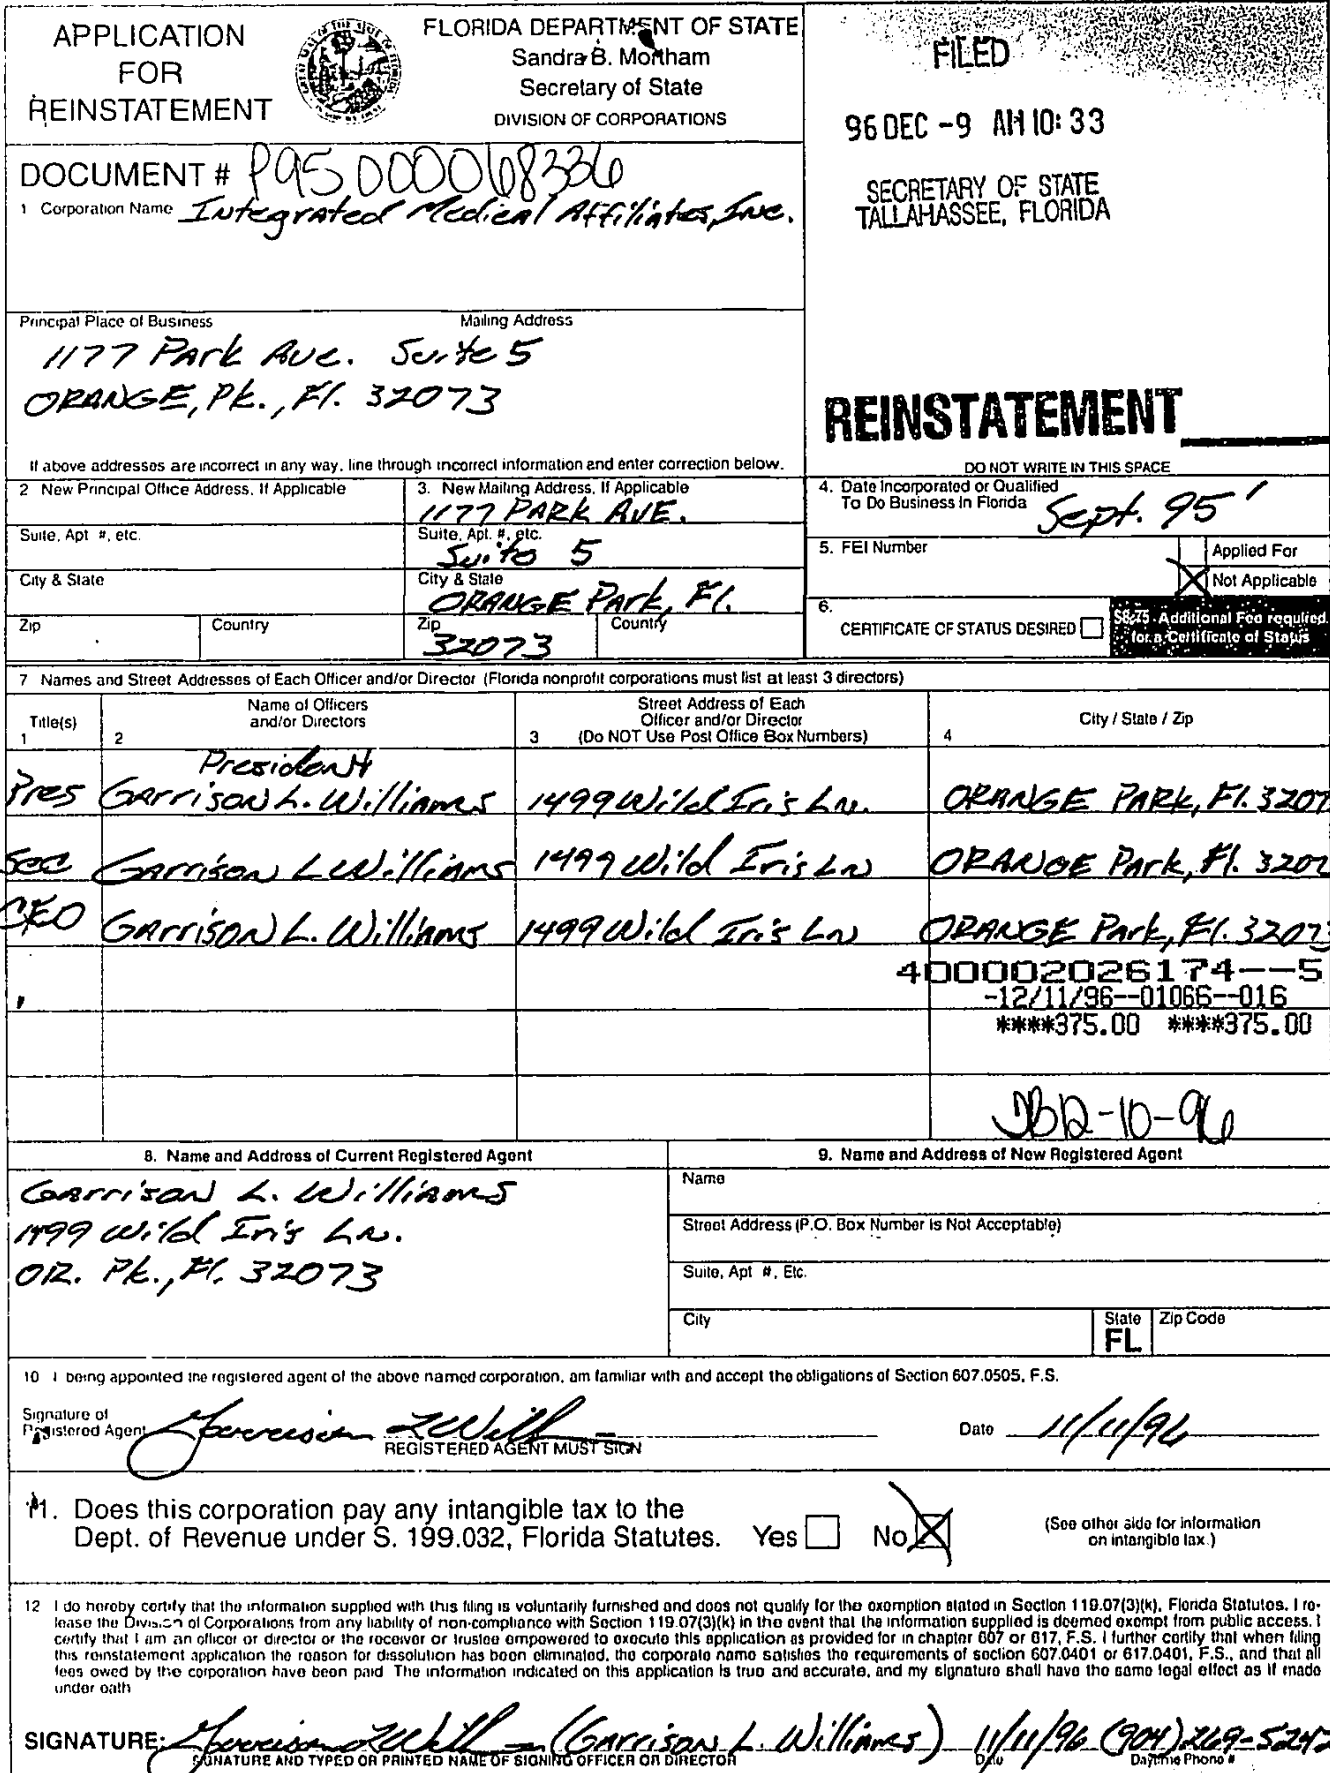 APPLICATION
FOR
REINSTATEMENT
FLORIDA DEPARTMENT OF STATE
Sandra B. Mortham
Secretary of State
DIVISION OF CORPORATIONS
FILED
96 DEC -9 AM 10:33
SECRETARY OF STATE
TALLAHASSEE, FLORIDA
DOCUMENT # P95000068336
1 Corporation Name Integrated Medical Affiliates, Inc.
Principal Place of Business Mailing Address
1177 Park Ave. Suite 5
ORANGE, Pk., Fl. 32073
REINSTATEMENT
If above addresses are incorrect in any way, line through incorrect information and enter correction below.
DO NOT WRITE IN THIS SPACE
2 New Principal Office Address, If Applicable
Suite, Apt #, etc.
City & State
Zip Country
3. New Mailing Address, If Applicable
1177 PARK AVE.
Suite, Apt. #, etc.
Suite 5
City & State
ORANGE Park, Fl.
Zip Country
32073
4. Date Incorporated or Qualified
To Do Business in Florida Sept. 95'
5. FEI Number
Applied For
Not Applicable
6.
CERTIFICATE OF STATUS DESIRED
$8.75 Additional Fee required
for a Certificate of Status
7 Names and Street Addresses of Each Officer and/or Director (Florida nonprofit corporations must list at least 3 directors)
Title(s)
1
Name of Officers
and/or Directors
2
Street Address of Each
Officer and/or Director
3 (Do NOT Use Post Office Box Numbers)
City / State / Zip
4
President
Pres Garrison L. Williams 1499 Wild Iris Ln. ORANGE PARK, Fl. 3207
Sec Garrison L Williams 1499 Wild Iris Ln ORANGE Park, Fl. 3207
CEO Garrison L. Williams 1499 Wild Iris Ln ORANGE Park, Fl. 32073
400002026174--5
-12/11/96--01066--016
****375.00 ****375.00
12-10-96
8. Name and Address of Current Registered Agent
Garrison L. Williams
1499 Wild Iris Ln.
OR. Pk., Fl. 32073
9. Name and Address of New Registered Agent
Name
Street Address (P.O. Box Number is Not Acceptable)
Suite, Apt #, Etc.
City
State
FL
Zip Code
10 I being appointed the registered agent of the above named corporation, am familiar with and accept the obligations of Section 607.0505, F.S.
Signature of
Registered Agent Garrison L Will
REGISTERED AGENT MUST SIGN
Date 11/11/96
11. Does this corporation pay any intangible tax to the
Dept. of Revenue under S. 199.032, Florida Statutes. Yes No
(See other side for information
on intangible tax.)
12 I do hereby certify that the information supplied with this filing is voluntarily furnished and does not qualify for the exemption stated in Section 119.07(3)(k), Florida Statutes. I re-
lease the Division of Corporations from any liability of non-compliance with Section 119.07(3)(k) in the event that the information supplied is deemed exempt from public access. I
certify that I am an officer or director or the receiver or trustee empowered to execute this application as provided for in chapter 607 or 617, F.S. I further certify that when filing
this reinstatement application the reason for dissolution has been eliminated, the corporate name satisfies the requirements of section 607.0401 or 617.0401, F.S., and that all
fees owed by the corporation have been paid The information indicated on this application is true and accurate, and my signature shall have the same legal effect as if made
under oath
SIGNATURE: Garrison L Will (Garrison L. Williams) 11/11/96 (904) 269-5242
SIGNATURE AND TYPED OR PRINTED NAME OF SIGNING OFFICER OR DIRECTOR Date Daytime Phone #